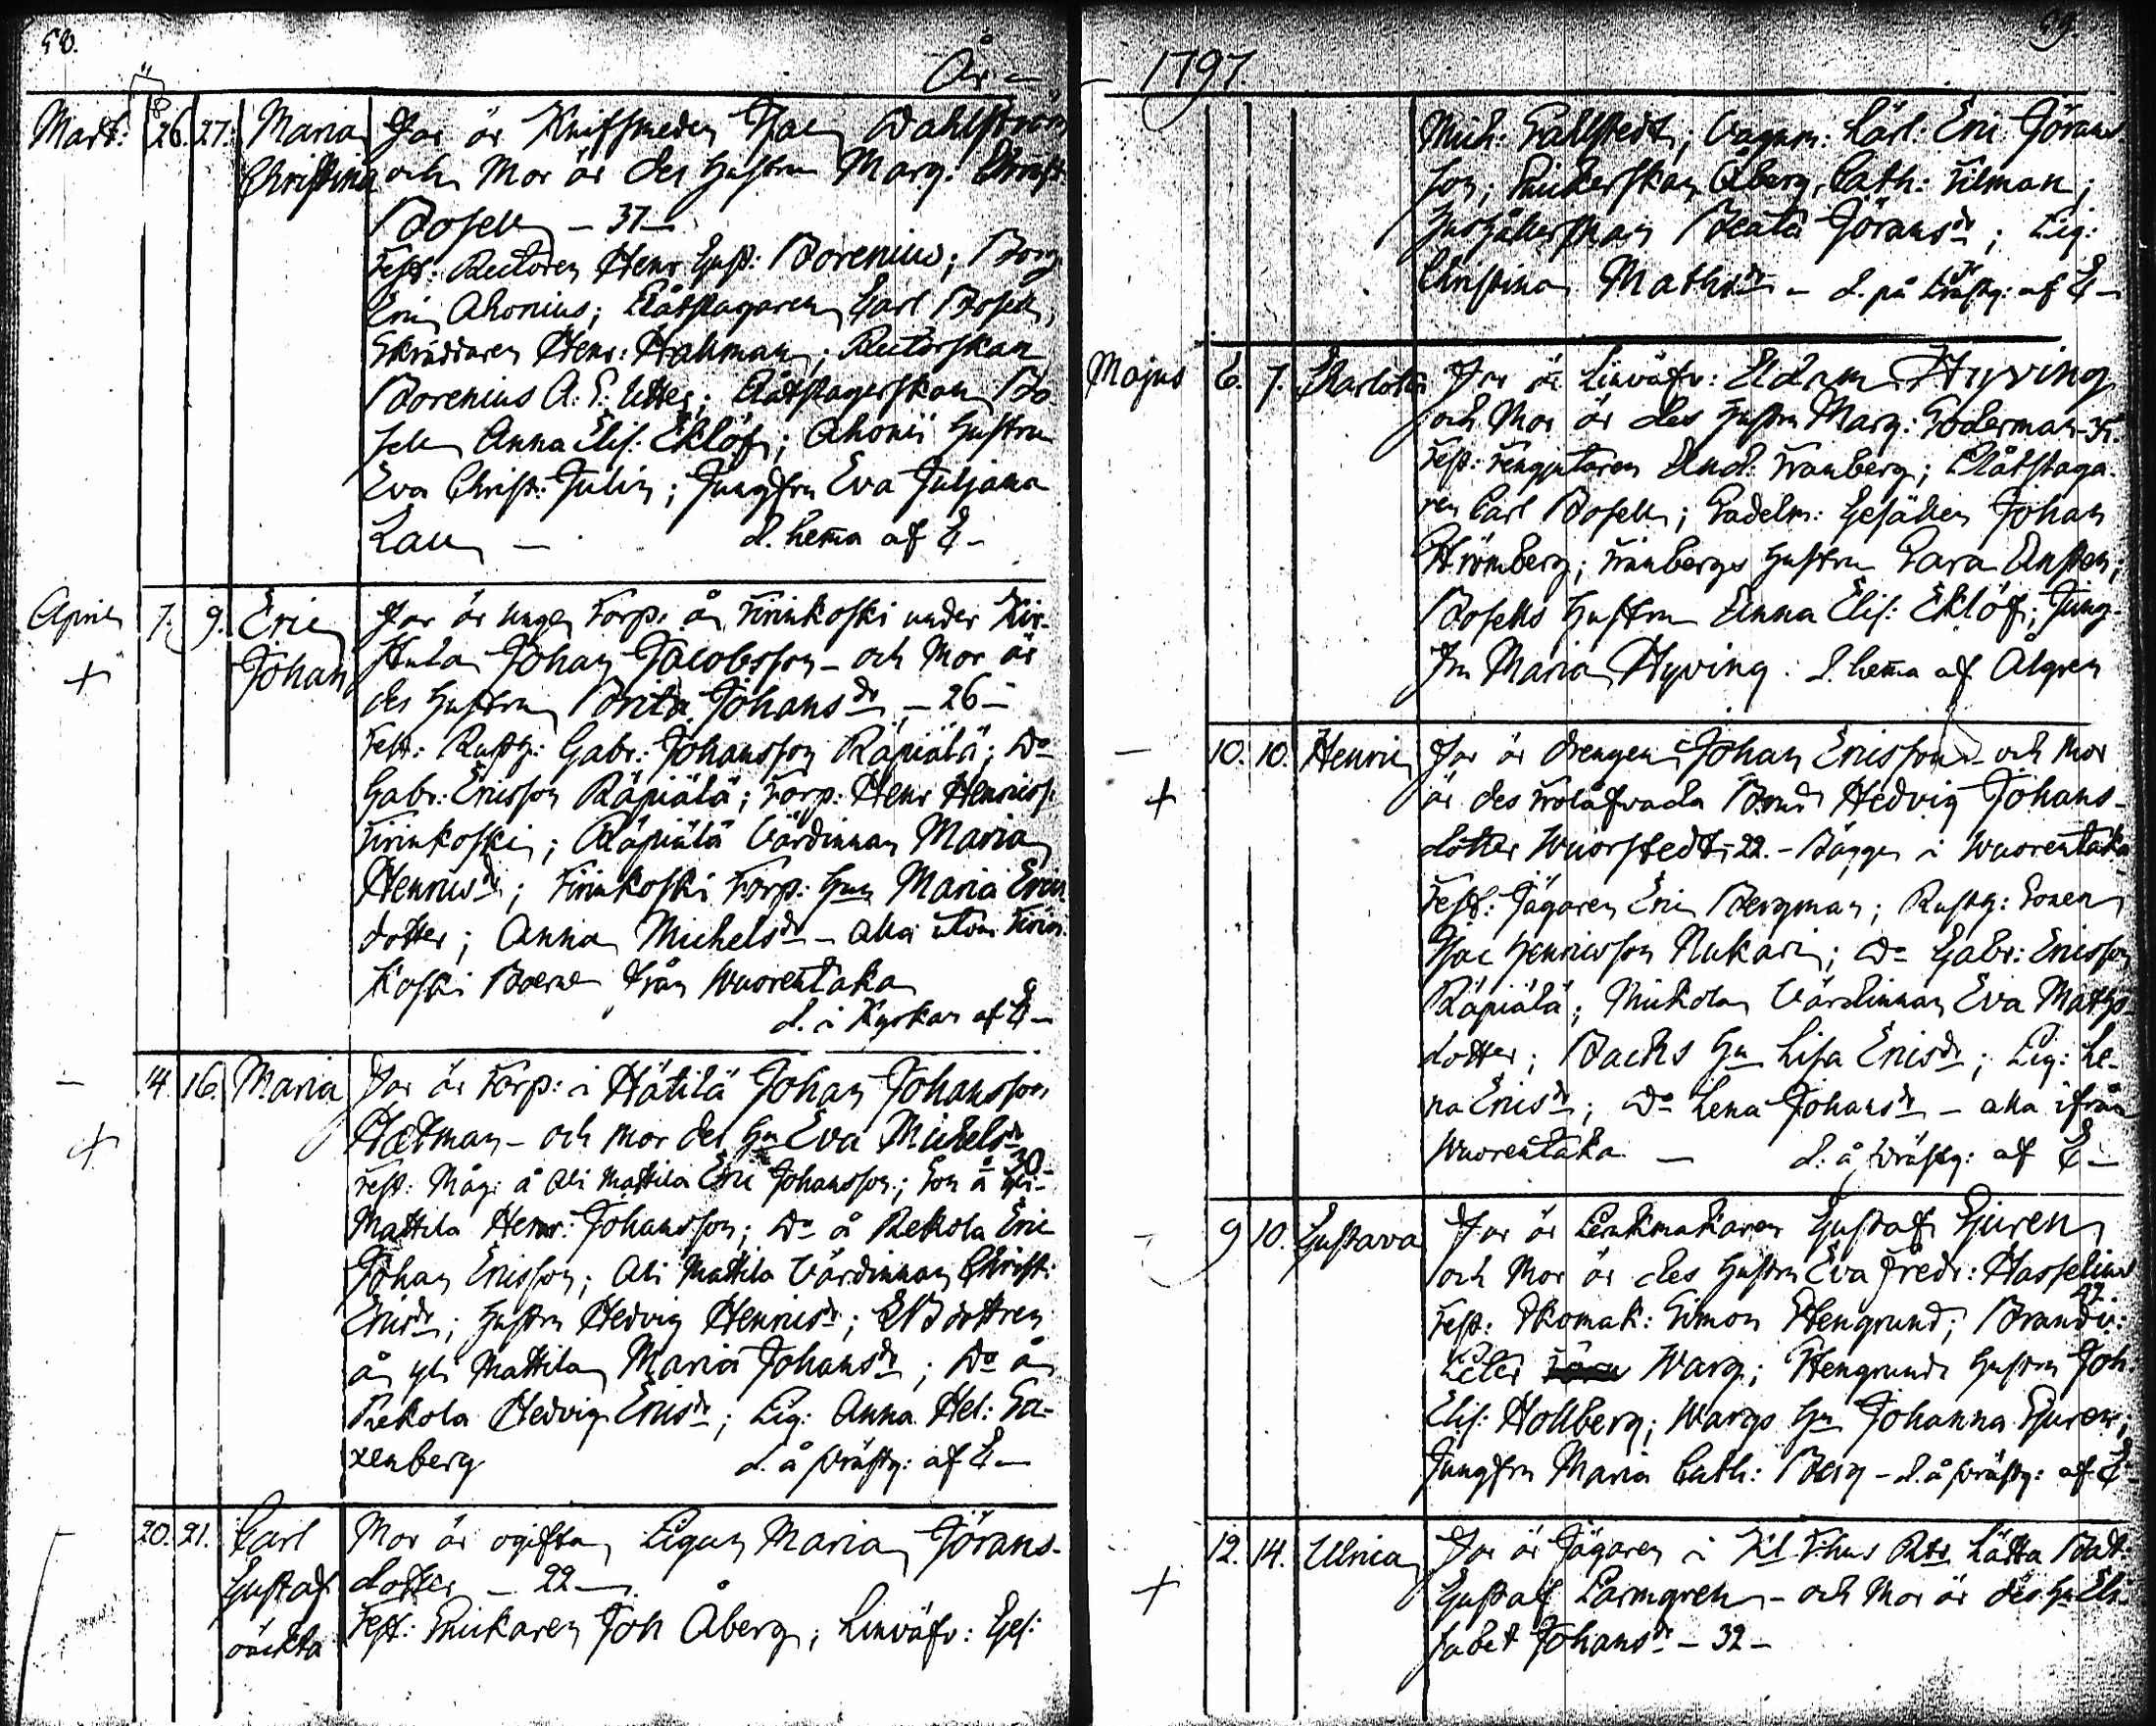 58.
År
Mart: 26. 27. Maria Far är Knifsmeden Isac Dahlström
Christina och Mor är des hustru Marg: Christ:
Bosell - 37 -
Test: Rectoren Henr Gust: Borenius; Borg
Eric Ahonius; Plåtslagaren Carl Bosell,
Skräddaren Henr: Hallman; Rectorskan
Borenius A: E: Utter; Plåtslagerskan Bo-
sell Anna Elis: Eklöf; Ahonii hustru
Eva Christ: Julin; Jungfru Eva Juljana
Lau - d. hema af E -
April 7. 9. Eric Far är unge Torp. å Tirinkoski under Kir-
+ Johan stula Johan Jacobsson - och Mor är
des hustru Brita Johansdr - 26 -
Test: Rusth: Gabr: Johansson Räpiälä; Do
Gabr: Ericsson Räpiälä; Torp: Henr Henricss:
Tirinkoski; Räpiälä Värdinnan Maria
Henricsdr; Tirinkoski Torp: Hun Maria Erics
dotter; Anna Michelsdr - alla utom Tirin
koski Boerne från Wuorentaka
d. i Kyrkan af E -
- 14. 16. Maria Far är Torp: i Hätilä Johan Johansson
+ Hetman - och Mor des Hu Eva Michelsdr
30 -
Test: Måg: å Ali Mattila Eric Johansson; Son å Yli-
Mattila Henr: Johansson; Do å Rekola Eric
Johan Ericsson; Ali Mattila Värdinnan Christ:
Ericsdr; hustru Hedvig Henricsdr; dottren
å Yli Mattila Maria Johansdr; Do å
Rekola Hedvig Ericsdr; Pig: Anna Hel: Sa-
xenberg d. å Prästg: af E -
20. 21. Carl Mor är ogifta Pigan Maria Jörans-
Gustaf dotter - 22 -
oäckta Test: Snickaren Joh Åberg; Linväfv: Ges:
59.
1797.
Mich: Gallstedt; Vagnm: Lärl: Eric Jörans
son; Snickerskan Åberg, Cath: Tilman;
Beata Jöransdr; Pig:
Christina Mathsdr - d. på Prästg: af E -
Majus 6. 7. Charlotta Far är Linväfv: Adam Hyving
och Mor är des hustru Marg: Soderman - 35.
Test: And: Tranberg; Plåtslaga-
ren Carl Bosell; Sadelm: Gesällen Johan
Strömberg; Tranbergs hustru Sara
Bosells hustru Anna Elis: Eklöf; Jung-
fru Maria Hyving. d. hema af Algren
- 10. 10. Henric Far är drengen Johan Ericsson - och Mor
+ är des trolåfvada Brud Hedvig Johans-
dotter Wuorstedt - 22. - Bägge i Wuorentaka
Test: Jägaren Eric Bergman; Rusth: Sonen
Isac Henricsson Nukari; Do Gabr: Ericsson
Räpiälä; Mickola Värdinnan Eva Maths-
dotter; Backs Hu Lisa Ericsdr; Pig: Le-
na Ericsdr; Do Lena Johansdr - alla ifrån
Wuorentaka - d: å Prästg: af E -
- 9 10. Gustava Far är Gustaf Gjuren
och Mor är des hustru Eva Fredr: Hasselius
Test: Skomak: Simon Stengrund;
Warg; Stengrunds hustru Joh:
Elis: Hollberg; Wargs Hu Johanna Gjuren;
Jungfru Maria Cath: Berg - d. å Prästg: af E -
12. 14. Ulrica Far är Jägaren i
+ Gustaf Parmgren - och Mor är des Hu Eli-
sabet Johansdr - 32 -